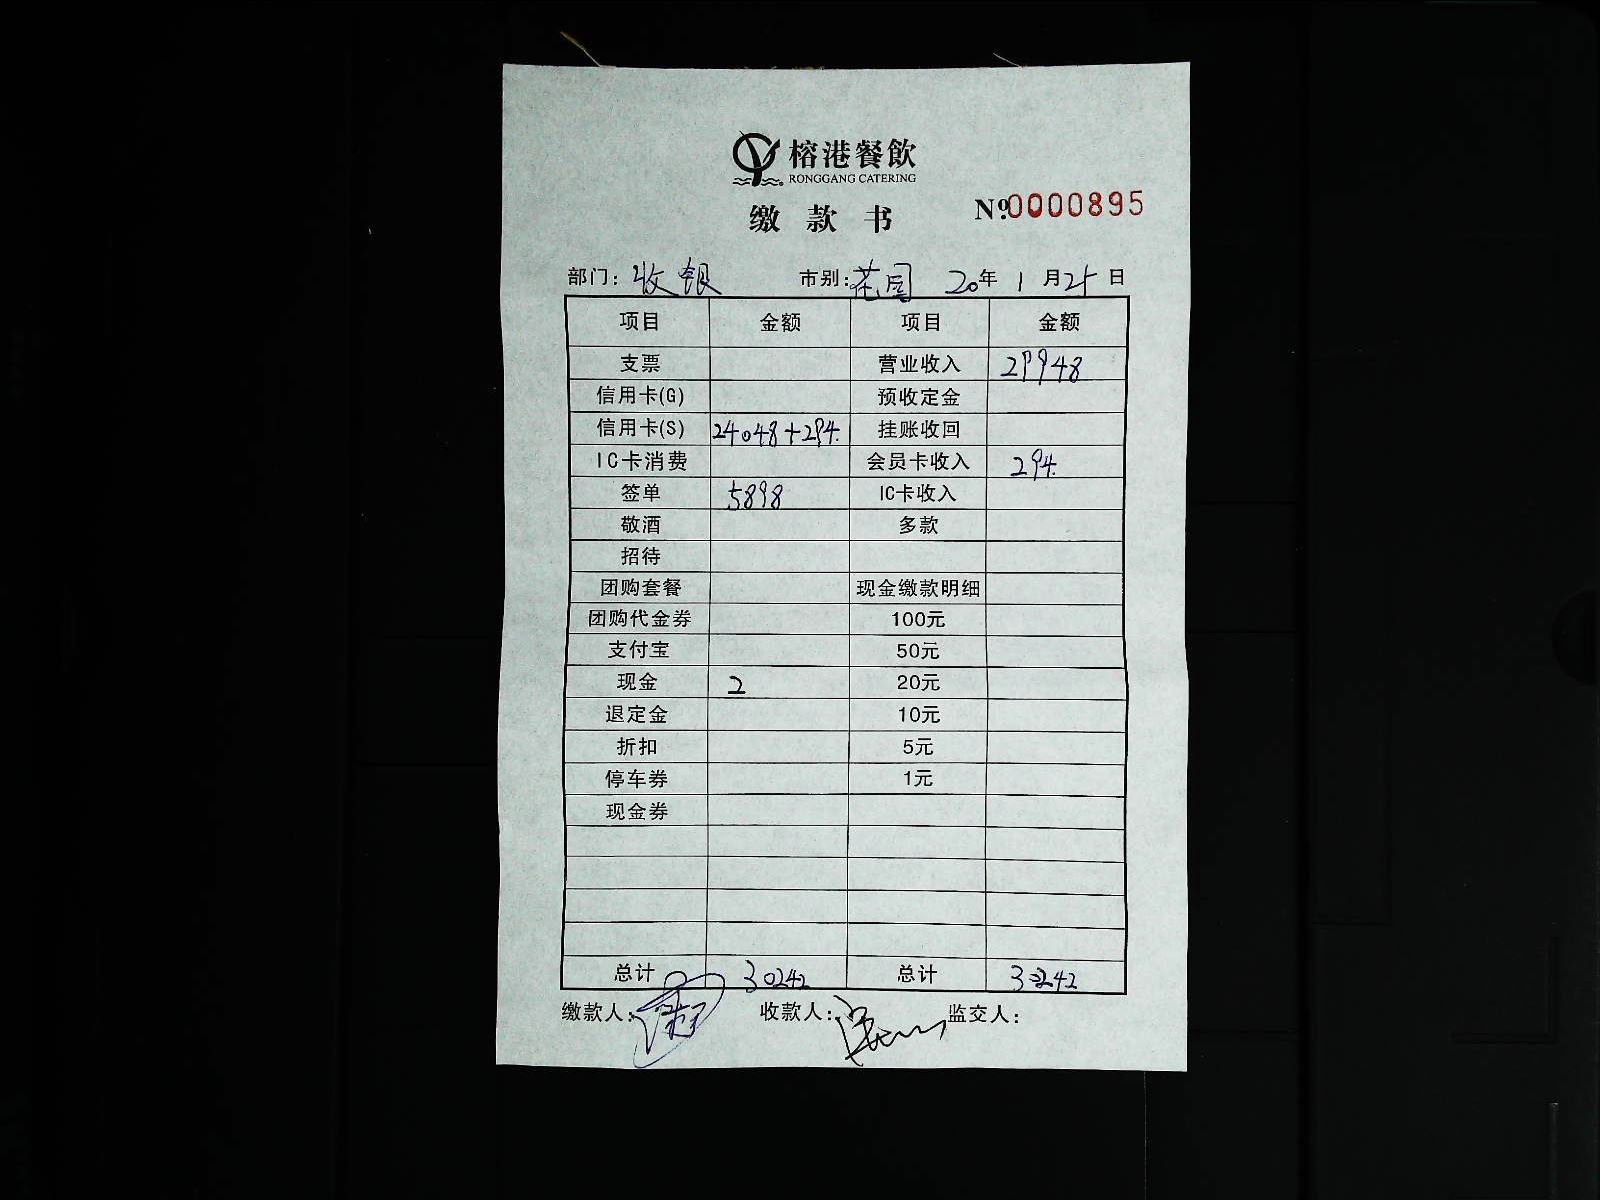 榕港餐飲
RONGGANG CATERING
缴款书
№0000895
部门：收银 市别：花园 20年1月25日
项目 金额 项目 金额
支票 营业收入 29948
信用卡(G) 预收定金
信用卡(S) 24048+294. 挂账收回
IC卡消费 会员卡收入 294.
签单 5898 IC卡收入
敬酒 多款
招待
团购套餐 现金缴款明细
团购代金券 100元
支付宝 50元
现金 2 20元
退定金 10元
折扣 5元
停车券 1元
现金券
总计 30242 总计 30242
缴款人： 收款人： 监交人：